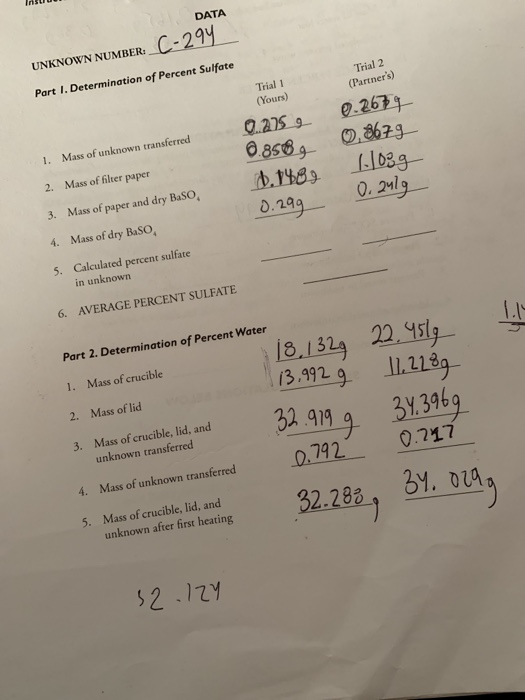 DATA
UNKNOWN NUMBER: C-294
Part 1. Determination of Percent Sulfate
Trial 1 Trial 2
(Yours) (Partner's)
1. Mass of unknown transferred 0.275 g
2. Mass of filter paper 0.858 g 0.867g
3. Mass of paper and dry BaSO4 1.148g 1.103g
4. Mass of dry BaSO4 0.29g
5. Calculated percent sulfate
in unknown
6. AVERAGE PERCENT SULFATE
Part 2. Determination of Percent Water
1. Mass of crucible 18.132g 22.451g
2. Mass of lid 13.992 g 11.228g
3. Mass of crucible, lid, and
unknown transferred 32.919 g 34.396g
4. Mass of unknown transferred 0.792
5. Mass of crucible, lid, and
unknown after first heating 32.283g 34.029g
32.124